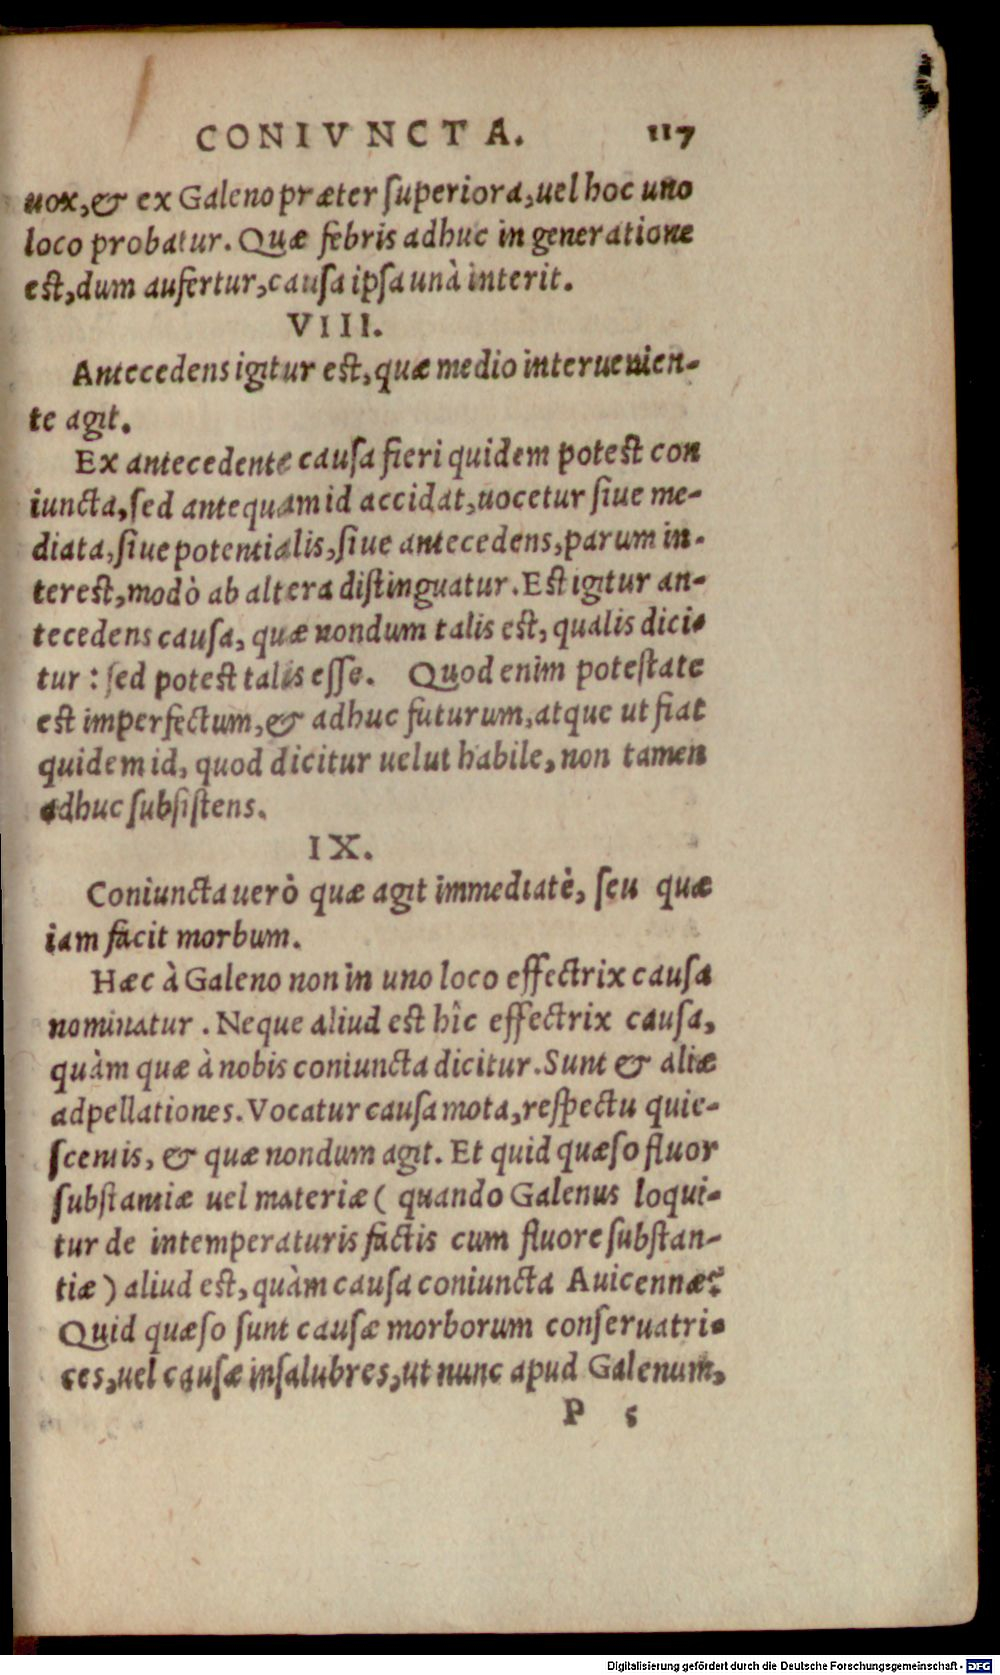 CONIVNCTA. 117
uox, & ex Galeno præter superiora, uel hoc uno
loco probatur. Quæ febris adhuc in generatione
est, dum aufertur, causa ipsa unà interit.
VIII.
Antecedens igitur est, quæ medio interuenien-
te agit.
Ex antecedente causa fieri quidem potest con
iuncta, sed antequam id accidat, uocetur siue me-
diata, siue potentialis, siue antecedens, parum in-
terest, modò ab altera distinguatur. Est igitur an-
tecedens causa, quæ nondum talis est, qualis dici-
tur: sed potest talis esse. Quod enim potestate
est imperfectum, & adhuc futurum, atque ut fiat
quidem id, quod dicitur uelut habile, non tamen
adhuc subsistens.
IX.
Coniuncta uerò quæ agit immediatè, seu quæ
iam facit morbum.
Hæc à Galeno non in uno loco effectrix causa
nominatur. Neque aliud est hîc effectrix causa,
quàm quæ à nobis coniuncta dicitur. Sunt & aliæ
adpellationes. Vocatur causa mota, respectu quie-
scentis, & quæ nondum agit. Et quid quæso fluor
substantiæ uel materiæ (quando Galenus loqui-
tur de intemperaturis factis cum fluore substan-
tiæ) aliud est, quàm causa coniuncta Auicennæ?
Quid quæso sunt causæ morborum conseruatri-
ces, uel causæ insalubres, ut nunc apud Galenum,
P 5
Digitalisierung gefördert durch die Deutsche Forschungsgemeinschaft - DFG